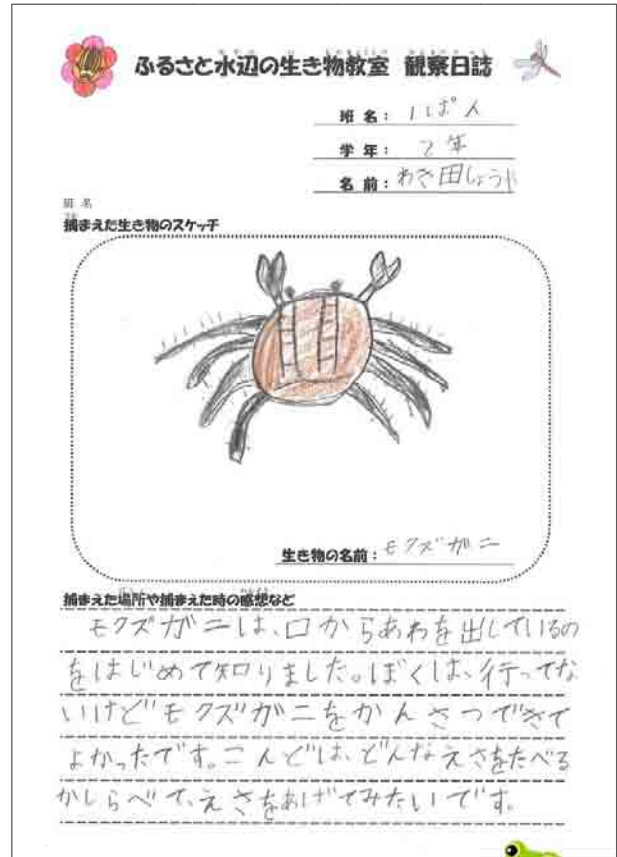 ふるさと水辺の生き物教室 観察日誌
班名： 1ぱん
学年： 2年
名前： わき田しょう
班 名
捕まえた生き物のスケッチ
生き物の名前： モクズガニ
捕まえた場所や捕まえた時の感想など
モクズガニは、口からあわを出しているの
をはじめて知りました。ぼくは、行ってな
いけどモクズガニをかんさつできて
よかったです。こんどは、どんなえさをたべる
かしらべて、えさをあげてみたいです。